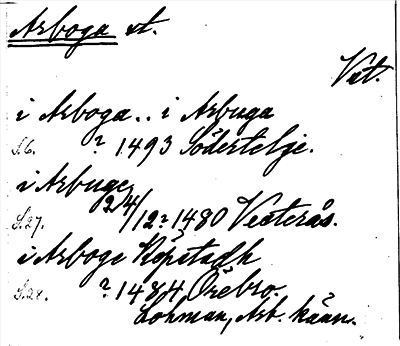 Arboga st.
Vst.
i Arboga.. i Arbuga
S.6. ? 1493 Södertelje.
i Arbuge
S.27. 24/12? 1480 Vesterås.
i Arboge Köpstadh
S.28. ? 1484 Örebro.
Lohman, Arb. känn.